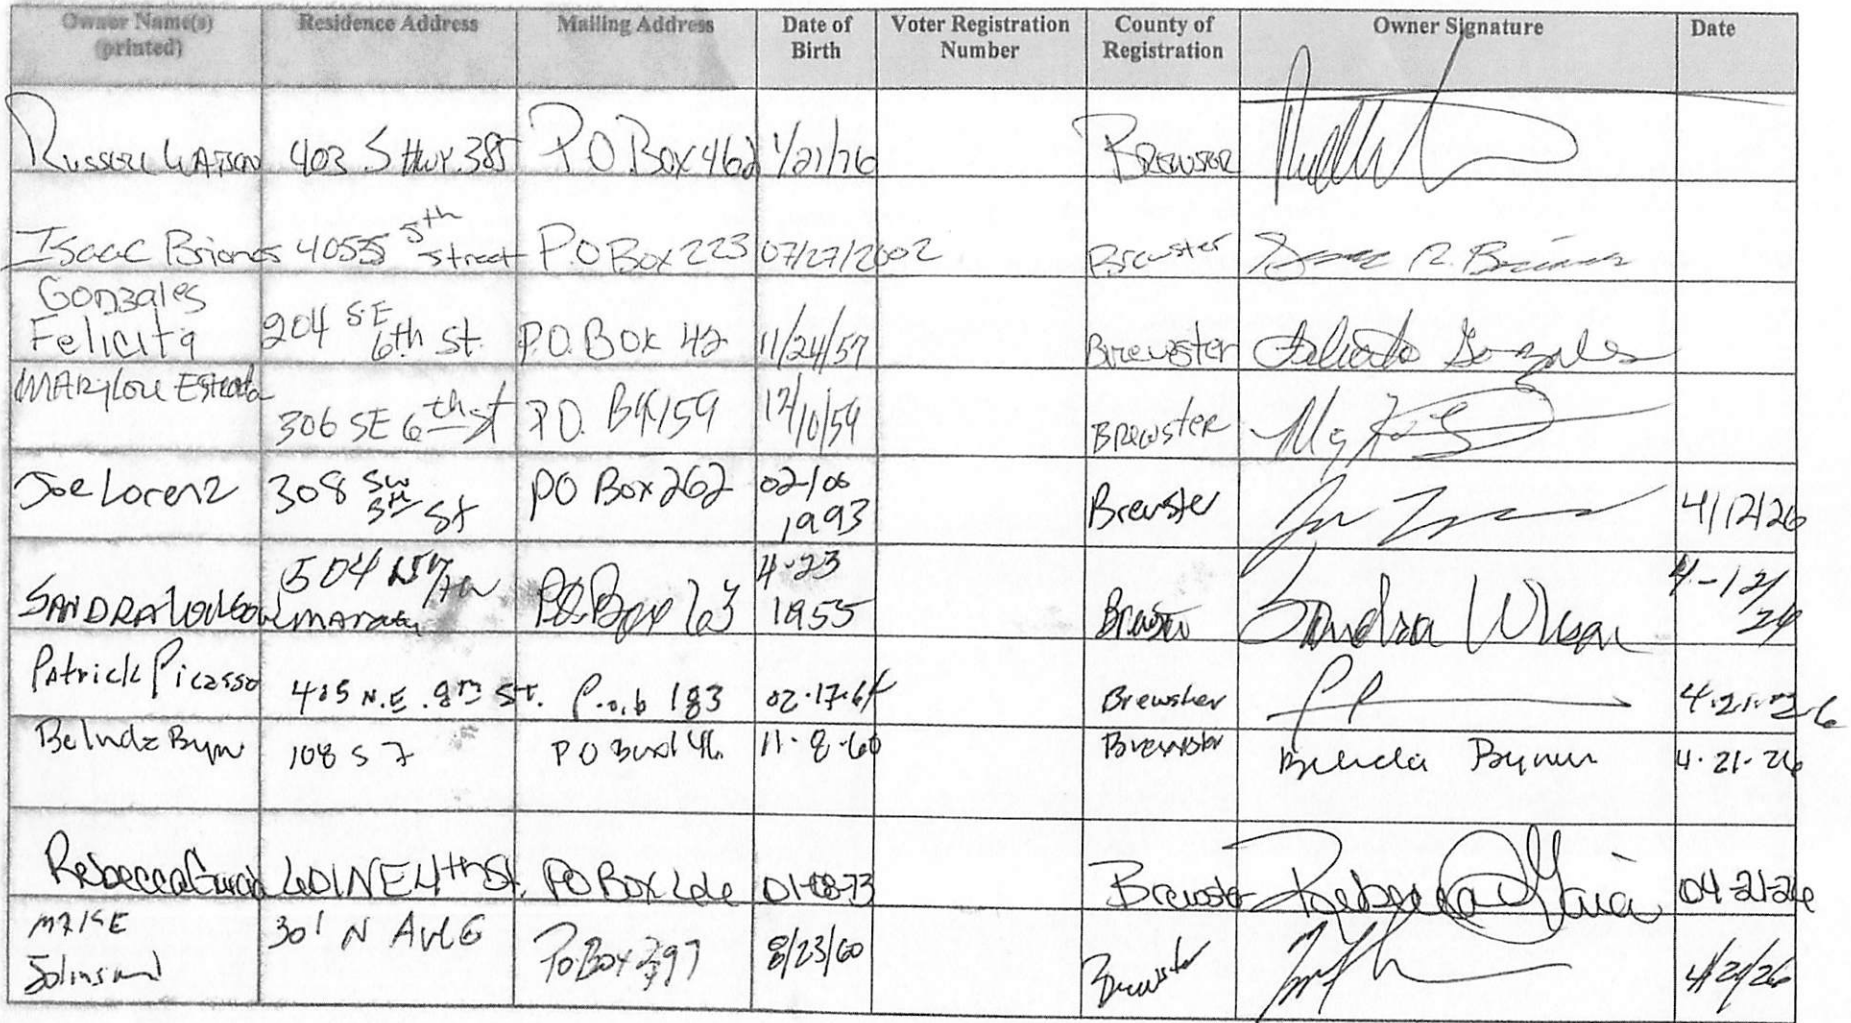 Owner Name(s) (printed) Residence Address Mailing Address Date of Birth Voter Registration Number County of Registration Owner Signature Date
Russell Watson 403 S Hwy. 385 P.O. Box 462 1/21/76 Brewster
Isaac Briones 405 5th Street P.O Box 223 07/27/2002 Brewster Isaac R. Briones
Gonzales Felicita 204 SE 6th St. P.O. Box 42 11/24/57 Brewster Felicita Gonzales
MARYLOU Estrada 306 SE 6th St P.O. BX 159 12/10/59 Brewster
Joe Lorenz 308 SW 3rd St PO Box 262 02/06 1993 Brewster 4/12/26
SANDRA Wilson 504 Marathon P.O. Box 163 4-23 1955 Sandra Wilson 4-12/
Patrick Picasso 405 N.E. 8th St. P.o.b 183 02-17-64 Brewsher 4-21-26
Belinda Bynum 108 S 7 PO Box 146 11-8-60 Brewster Belinda Bynum 4-21-26
Rebecca Garcia 601 NE 4th St. PO Box 01-08-73 Brewster Rebecca Garcia 04-21-26
MIKE Johnson 301 N Ave G Po Box 397 8/23/60 Brewster 4/21/26